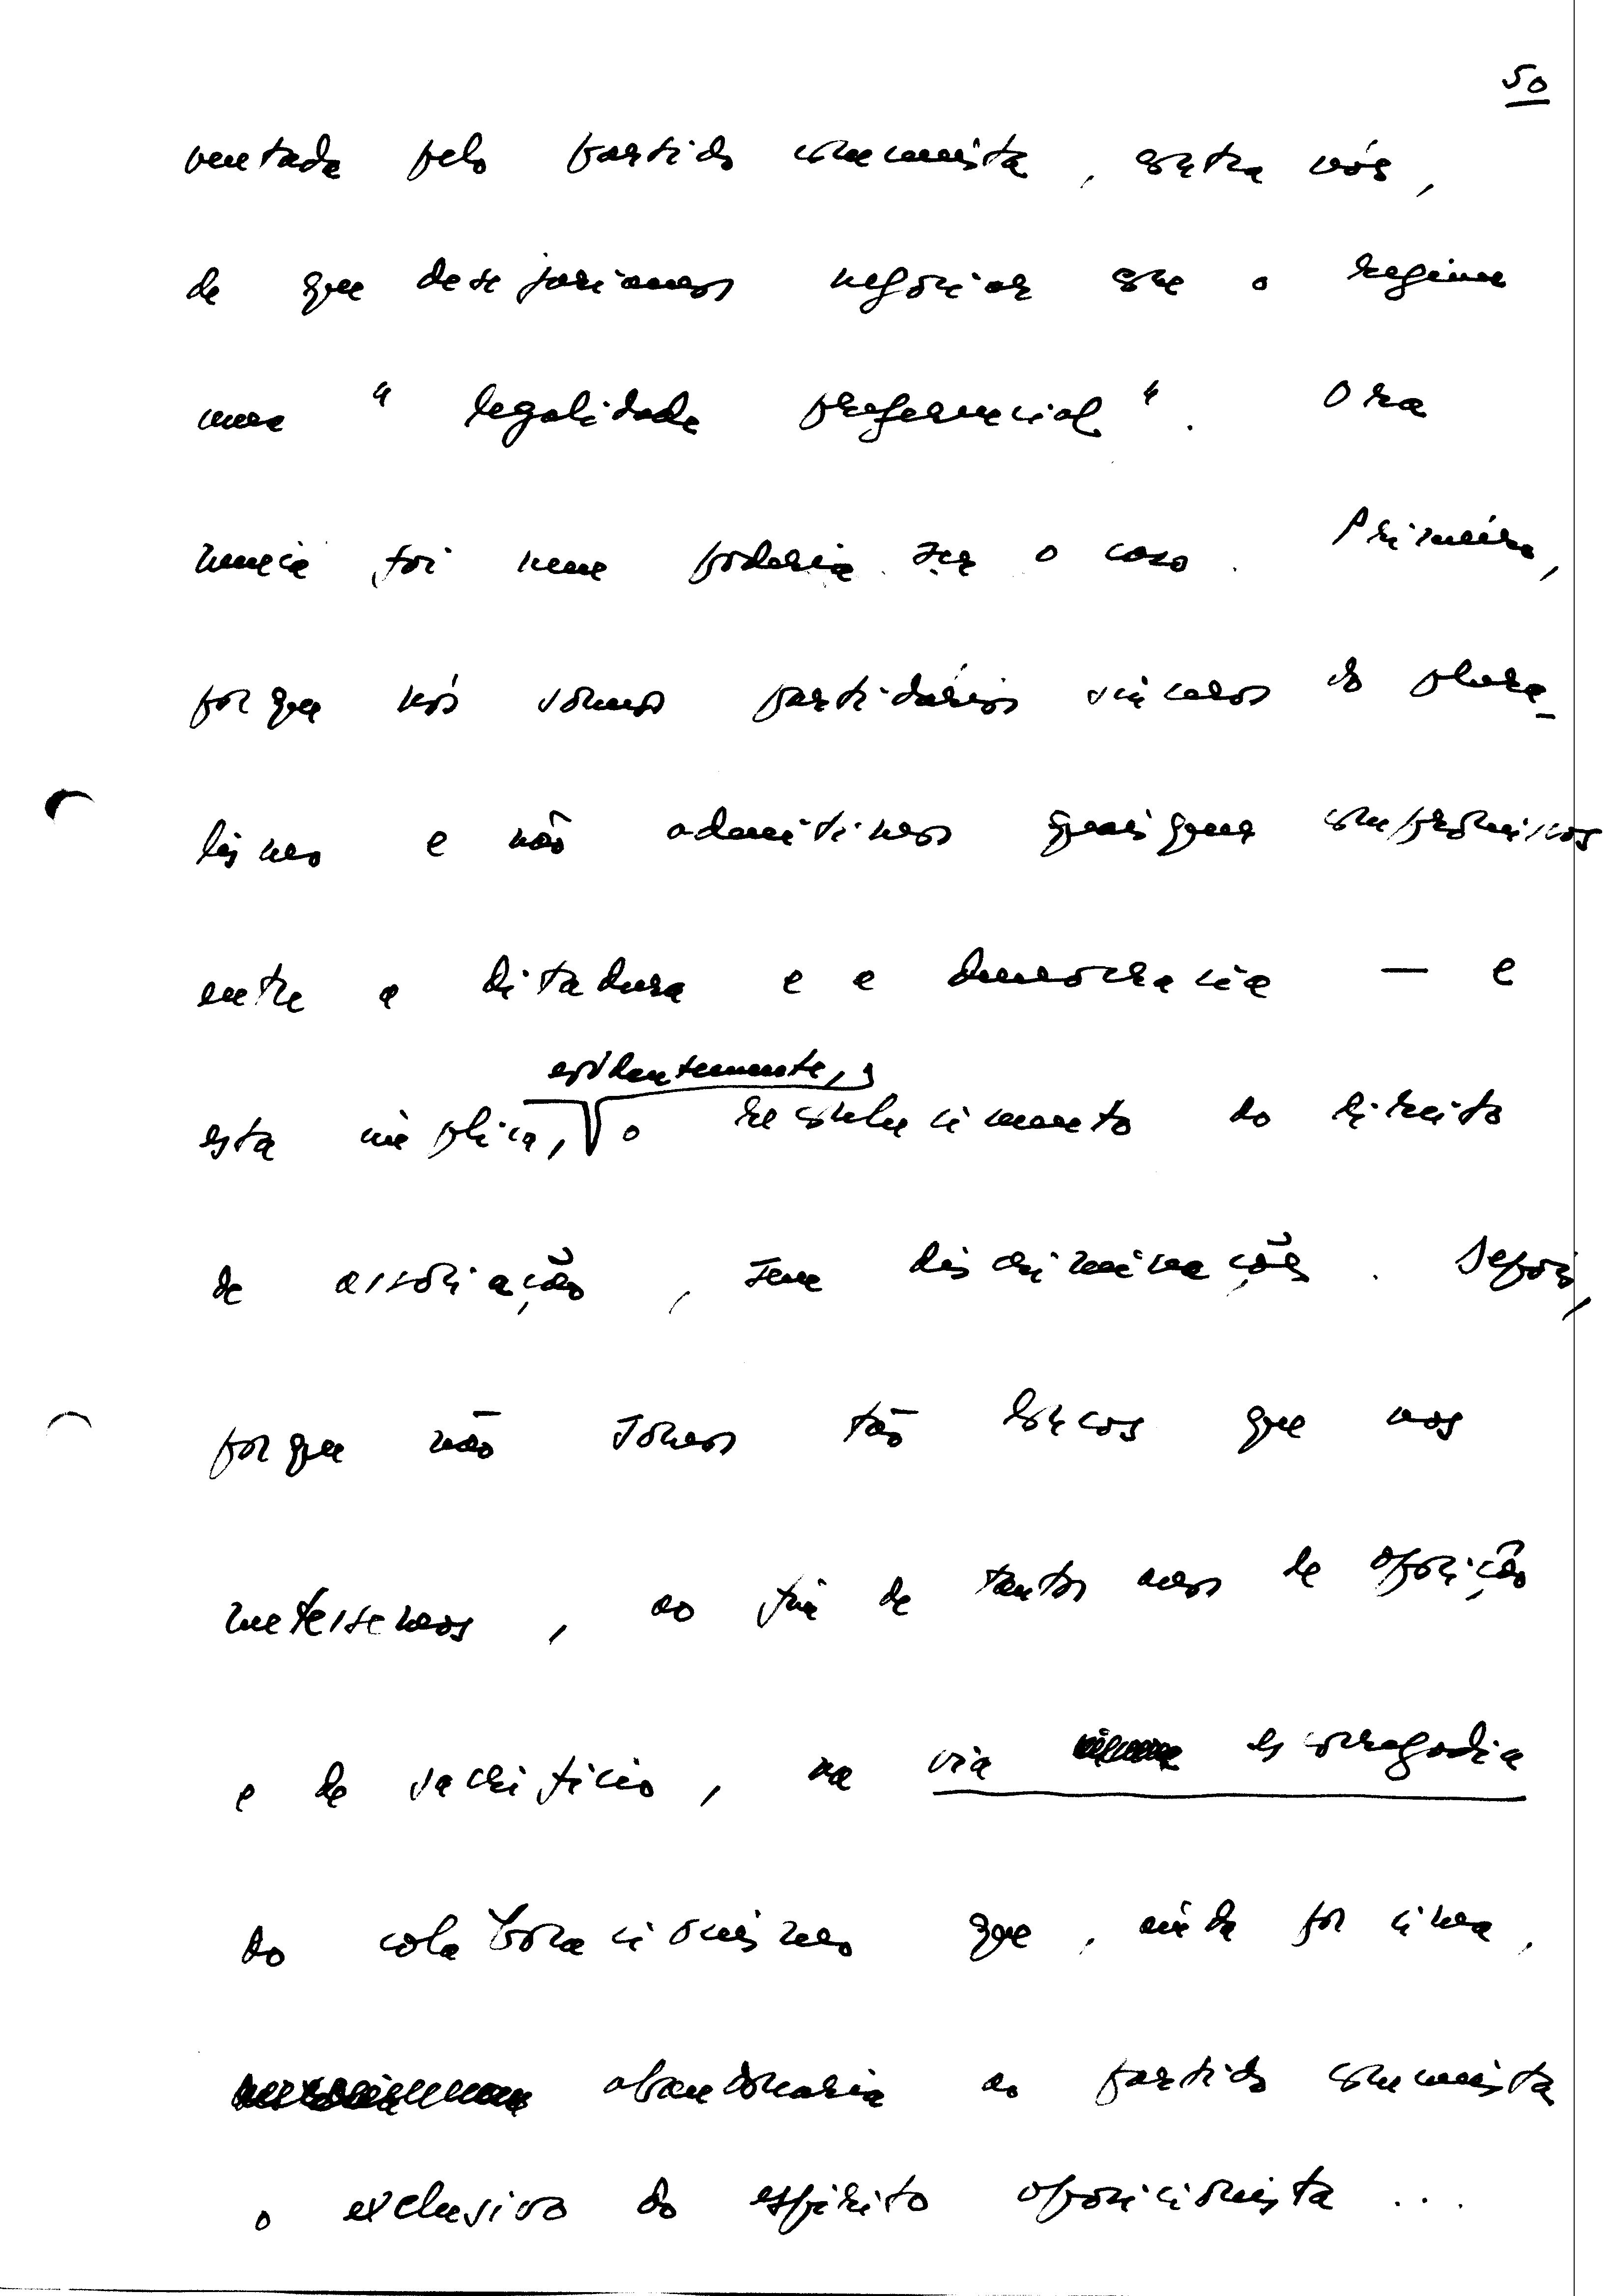 50
ventada pelo partido comunista, contra nós,
de que desejaríamos negociar com o regime
uma "legalidade preferencial". Ora
nunca foi nem poderia ser o caso. Primeiro,
porque nós somos partidários sinceros do plura-
lismo e não admitimos quaisquer compromissos
entre a ditadura e a democracia — e
evidentemente,
esta implica, o reconhecimento do direito
de associação, sem discriminações. Depois,
porque não somos tão loucos que nos
metessemos, ao fim de tantos anos de oposição
e de sacrifício, na via escorregadia
do colaboracionismo que, ainda por cima,
abandonaria ao partido comunista
o exclusivo do espírito oposicionista...